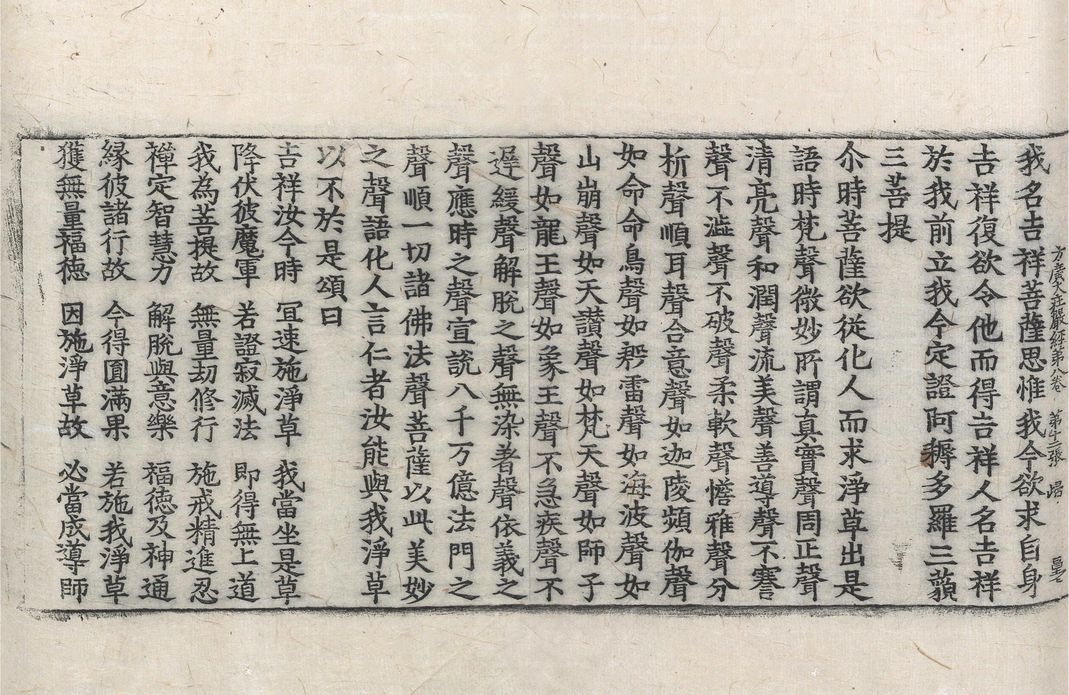 我名吉祥菩薩思惟我今欲求自身
吉祥復欲令他而得吉祥人名吉祥
於我前立我今定證阿耨多羅三藐
三菩提
尒時菩薩欲從化人而求淨草出是
語時梵聲微妙所謂真實聲周正聲
清亮聲和潤聲流美聲善導聲不謇
聲不澁聲不破聲柔軟聲憺雅聲分
析聲順耳聲合意聲如迦陵頻伽聲
如命命鳥聲如殷雷聲如海波聲如
山崩聲如天讚聲如梵天聲如師子
聲如龍王聲如象王聲不急疾聲不
遲緩聲解脫之聲無染著聲依義之
聲應時之聲宣說八千万億法門之
聲順一切諸佛法聲菩薩以此美妙
之聲語化人言仁者汝能與我淨草
以不於是頌曰
吉祥汝今時 冝速施淨草 我當坐是草
降伏彼魔軍 若證寂滅法 即得無上道
我為菩提故 無量劫修行 施戒精進忍
禪定智慧力 解脫與意樂 福德及神通
緣彼諸行故 今得圓滿果 若施我淨草
獲無量福德 因施淨草故 必當成導師
方廣大莊嚴經第八卷 第十二張